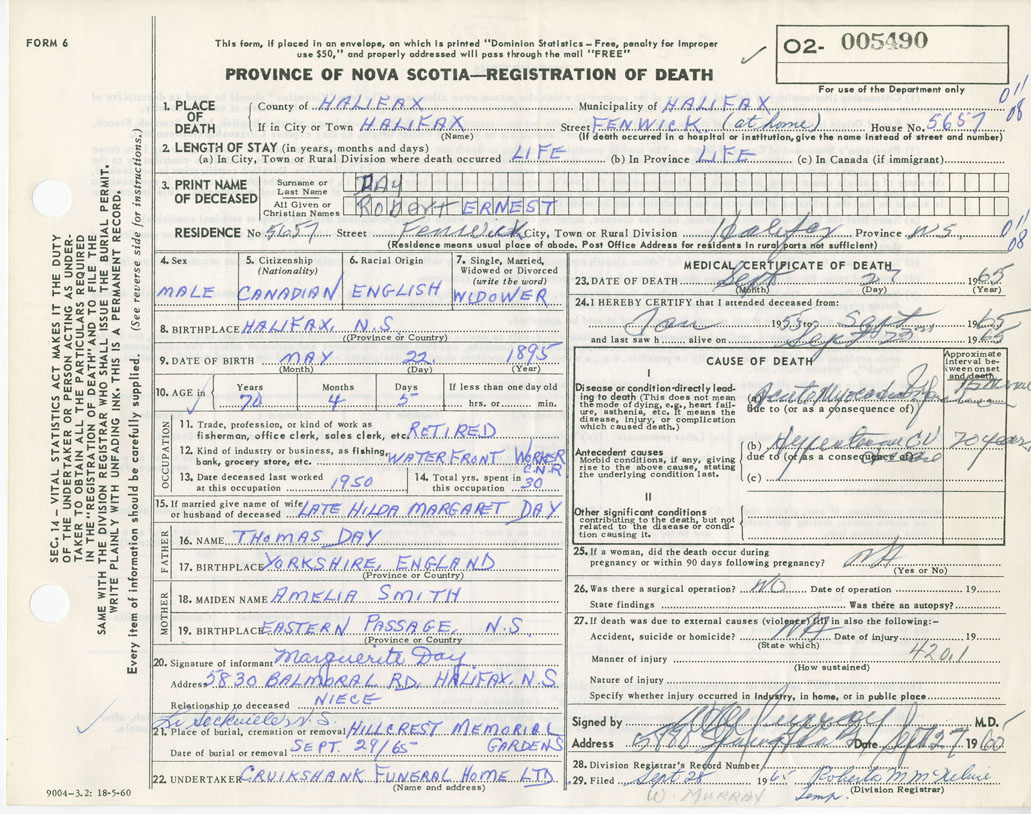 FORM 6
This form, if placed in an envelope, on which is printed "Dominion Statistics—Free, penalty for improper
use $50," and properly addressed will pass through the mail "FREE"
O2- 005490
For use of the Department only
PROVINCE OF NOVA SCOTIA—REGISTRATION OF DEATH
SEC. 14 – VITAL STATISTICS ACT MAKES IT THE DUTY
OF THE UNDERTAKER OR PERSON ACTING AS UNDER-
TAKER TO OBTAIN ALL THE PARTICULARS REQUIRED
IN THE "REGISTRATION OF DEATH" AND TO FILE THE
SAME WITH THE DIVISION REGISTRAR WHO SHALL ISSUE THE BURIAL PERMIT.
WRITE PLAINLY WITH UNFADING INK. THIS IS A PERMANENT RECORD.
Every item of information should be carefully supplied. (See reverse side for instructions.)
1. PLACE OF DEATH
County of HALIFAX Municipality of HALIFAX
If in City or Town HALIFAX Street FENWICK (at home) House No. 5657
(Name) (If death occurred in a hospital or institution, give the name instead of street and number)
0'11
08
2. LENGTH OF STAY (in years, months and days)
(a) In City, Town or Rural Division where death occurred LIFE (b) In Province LIFE (c) In Canada (if immigrant)
3. PRINT NAME OF DECEASED
Surname or Last Name DAY
All Given or Christian Names Robert ERNEST
RESIDENCE No 5657 Street Fenwick City, Town or Rural Division Halifax Province N.S.
(Residence means usual place of abode. Post Office Address for residents in rural parts not sufficient)
0'11
08
4. Sex MALE
5. Citizenship (Nationality) CANADIAN
6. Racial Origin ENGLISH
7. Single, Married, Widowed or Divorced (write the word) WIDOWER
8. BIRTHPLACE HALIFAX, N.S.
(Province or Country)
9. DATE OF BIRTH MAY 22 1895
(Month) (Day) (Year)
10. AGE in Years 70 Months 4 Days 5 If less than one day old hrs. or min.
OCCUPATION
11. Trade, profession, or kind of work as
fisherman, office clerk, sales clerk, etc. RETIRED
12. Kind of industry or business, as fishing,
bank, grocery store, etc. WATERFRONT WORKER C.N.R
13. Date deceased last worked at this occupation 1950
14. Total yrs. spent in this occupation 30
15. If married give name of wife
or husband of deceased LATE HILDA MARGARET DAY
FATHER
16. NAME THOMAS DAY
17. BIRTHPLACE YORKSHIRE, ENGLAND
(Province or Country)
MOTHER
18. MAIDEN NAME AMELIA SMITH
19. BIRTHPLACE EASTERN PASSAGE, N.S.
(Province or Country)
20. Signature of informant Marguerite Day
Address 5830 BALMORAL RD, HALIFAX. N.S
Relationship to deceased NIECE
Sackville, N.S.
21. Place of burial, cremation or removal HILLCREST MEMORIAL GARDENS
Date of burial or removal SEPT. 29/65
22. UNDERTAKER CRUIKSHANK FUNERAL HOME LTD.
(Name and address)
9004—3.2: 18-5-60
MEDICAL CERTIFICATE OF DEATH
23. DATE OF DEATH Sept 27 1965
(Month) (Day) (Year)
24. I HEREBY CERTIFY that I attended deceased from:
Jan 1955 to Sept 1965
and last saw h alive on Sept 1965
CAUSE OF DEATH
Approximate interval between onset and death
I
Disease or condition directly lead-
ing to death (This does not mean
the mode of dying, e.g., heart fail-
ure, asthenia, etc. It means the
disease, injury, or complication
which caused death.)
(a) Acute Myocardial
due to (or as a consequence of)
Antecedent causes
Morbid conditions, if any, giving
rise to the above cause, stating
the underlying condition last.
(b) Hypertensive C V disease 20 years
due to (or as a consequence of)
(c)
II
Other significant conditions
contributing to the death, but not
related to the disease or condi-
tion causing it.
25. If a woman, did the death occur during
pregnancy or within 90 days following pregnancy? NA
(Yes or No)
26. Was there a surgical operation? NO Date of operation 19
State findings Was there an autopsy?
27. If death was due to external causes (violence) fill in also the following:–
Accident, suicide or homicide? NA Date of injury 19
(State which)
420.1
Manner of injury
(How sustained)
Nature of injury
Specify whether injury occurred in industry, in home, or in public place
Signed by M.D.
Address Date Sept 27 19
28. Division Registrar's Record Number
29. Filed Sept 28 1965 Roberta M
(Division Registrar)
W. MURRAY Temp.